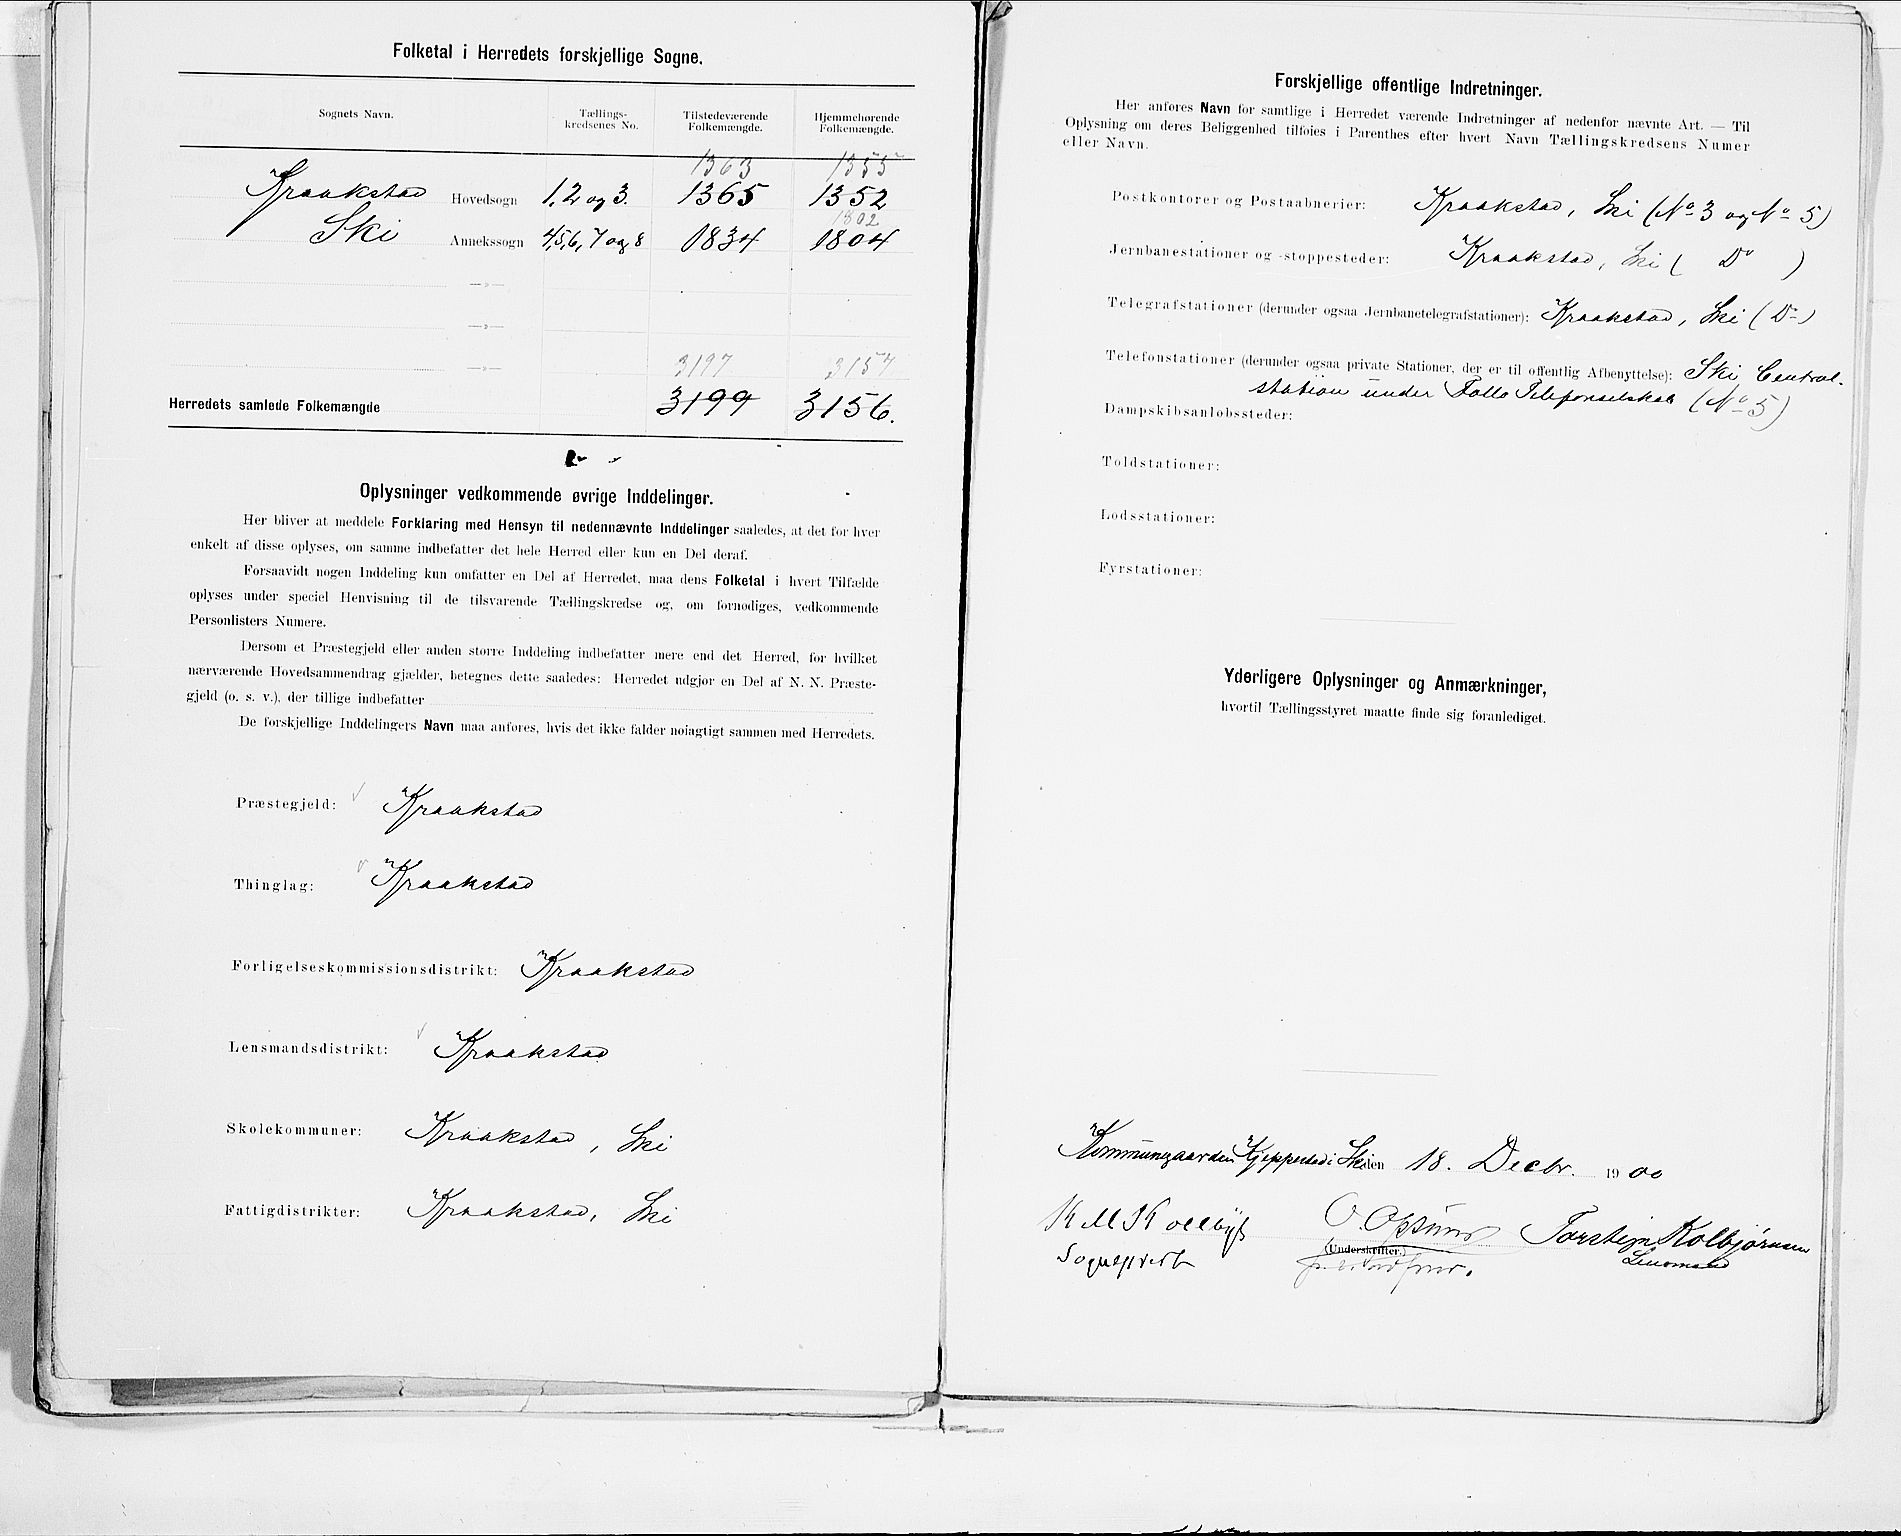 Folketal i Herredets forskjellige Sogne.
Sognets Navn. Tællings-kredsenes No. Tilstedeværende Folkemængde. Hjemmehørende Folkemængde.
1363 1355
Kraakstad Hovedsogn 1, 2 og 3. 1365 1352
1802
Ski Annekssogn 4, 5, 6, 7 og 8 1834 1804
—»—
—»—
3197 3157
—»—
Herredets samlede Folkemængde 3199 3156.
Oplysninger vedkommende øvrige Inddelinger.
Her bliver at meddele Forklaring med Hensyn til nedennævnte Inddelinger saaledes, at det for hver
enkelt af disse oplyses, om samme indbefatter det hele Herred eller kun en Del deraf.
Forsaavidt nogen Inddeling kun omfatter en Del af Herredet, maa dens Folketal i hvert Tilfælde
oplyses under speciel Henvisning til de tilsvarende Tællingskredse og, om fornødiges, vedkommende
Personlisters Numere.
Dersom et Præstegjeld eller anden større Inddeling indbefatter mere end det Herred, for hvilket
nærværende Hovedsammendrag gjælder, betegnes dette saaledes: Herredet udgjør en Del af N. N. Præste-
gjeld (o. s. v.), der tillige indbefatter
De forskjellige Inddelingers Navn maa anføres, hvis det ikke falder nøiagtigt sammen med Herredets.
Præstegjeld: Kraakstad
Thinglag: Kraakstad
Forligelseskommissionsdistrikt: Kraakstad
Lensmandsdistrikt: Kraakstad
Skolekommuner: Kraakstad, Ski
Fattigdistrikter: Kraakstad, Ski
Forskjellige offentlige Indretninger.
Her anføres Navn for samtlige i Herredet værende Indretninger af nedenfor nævnte Art. — Til
Oplysning om deres Beliggenhed tilføies i Parenthes efter hvert Navn Tællingskredsens Numer
eller Navn.
Postkontorer og Postaabnerier: Kraakstad, Ski (No 3 og No 5)
Jernbanestationer og -stoppesteder: Kraakstad, Ski ( Do )
Telegrafstationer (derunder ogsaa Jernbanetelegrafstationer): Kraakstad, Ski (Do)
Telefonstationer (derunder ogsaa private Stationer, der er til offentlig Afbenyttelse): Ski Central-
station under Follo Telefonselskab (No 5)
Dampskibsanløbssteder:
Toldstationer:
Lodsstationer:
Fyrstationer:
Yderligere Oplysninger og Anmærkninger,
hvortil Tællingsstyret maatte finde sig foranlediget.
Kommunegaarden Kjeppestad i Ski den 18. Decbr. 1900
K M Kollbye O. Opsund Torstein Kolbjørnsen
(Underskrifter.)
Sogneprest Lensmand